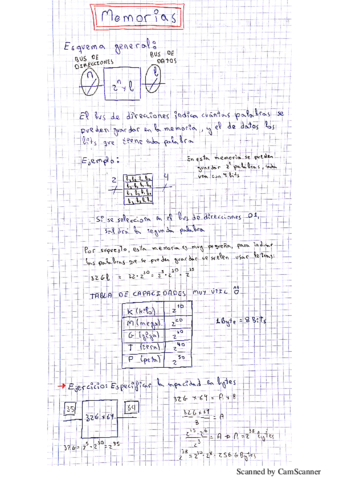 Memorias
Esquema general:
BUS DE DIRECCIONES
BUS DE DATOS
n
2ⁿ × l
l
El bus de direcciones indica cuántas palabras se
pueden guardar en la memoria, y el de datos los
bits que tiene cada palabra
Ejemplo:
2
4
En esta memoria se pueden
guardar 2² palabras, cada
una con 4 bits
Si se selecciona en el bus de direcciones 01,
saldrá la segunda palabra
Por supuesto, esta memoria es muy pequeña, para indicar
las palabras que se pueden guardar se suelen usar letras:
TABLA DE CAPACIDADES MUY ÚTIL
K (kilo) 2¹⁰
M (mega) 2²⁰
G (giga) 2³⁰
T (tera) 2⁴⁰
P (peta) 2⁵⁰
1 Byte = 8 Bits
→ Ejercicio: Especificar la capacidad en bytes
35
32G×64
64
32G = 2⁵·2³⁰ = 2³⁵
32G × 64 = A × 8
32G × 64 / 8 = A
2³⁵·2⁶ / 2³ = A → A = 2³⁸ bytes
2³⁸ = 2³⁰·2⁸ = 256 G Bytes
Scanned by CamScanner